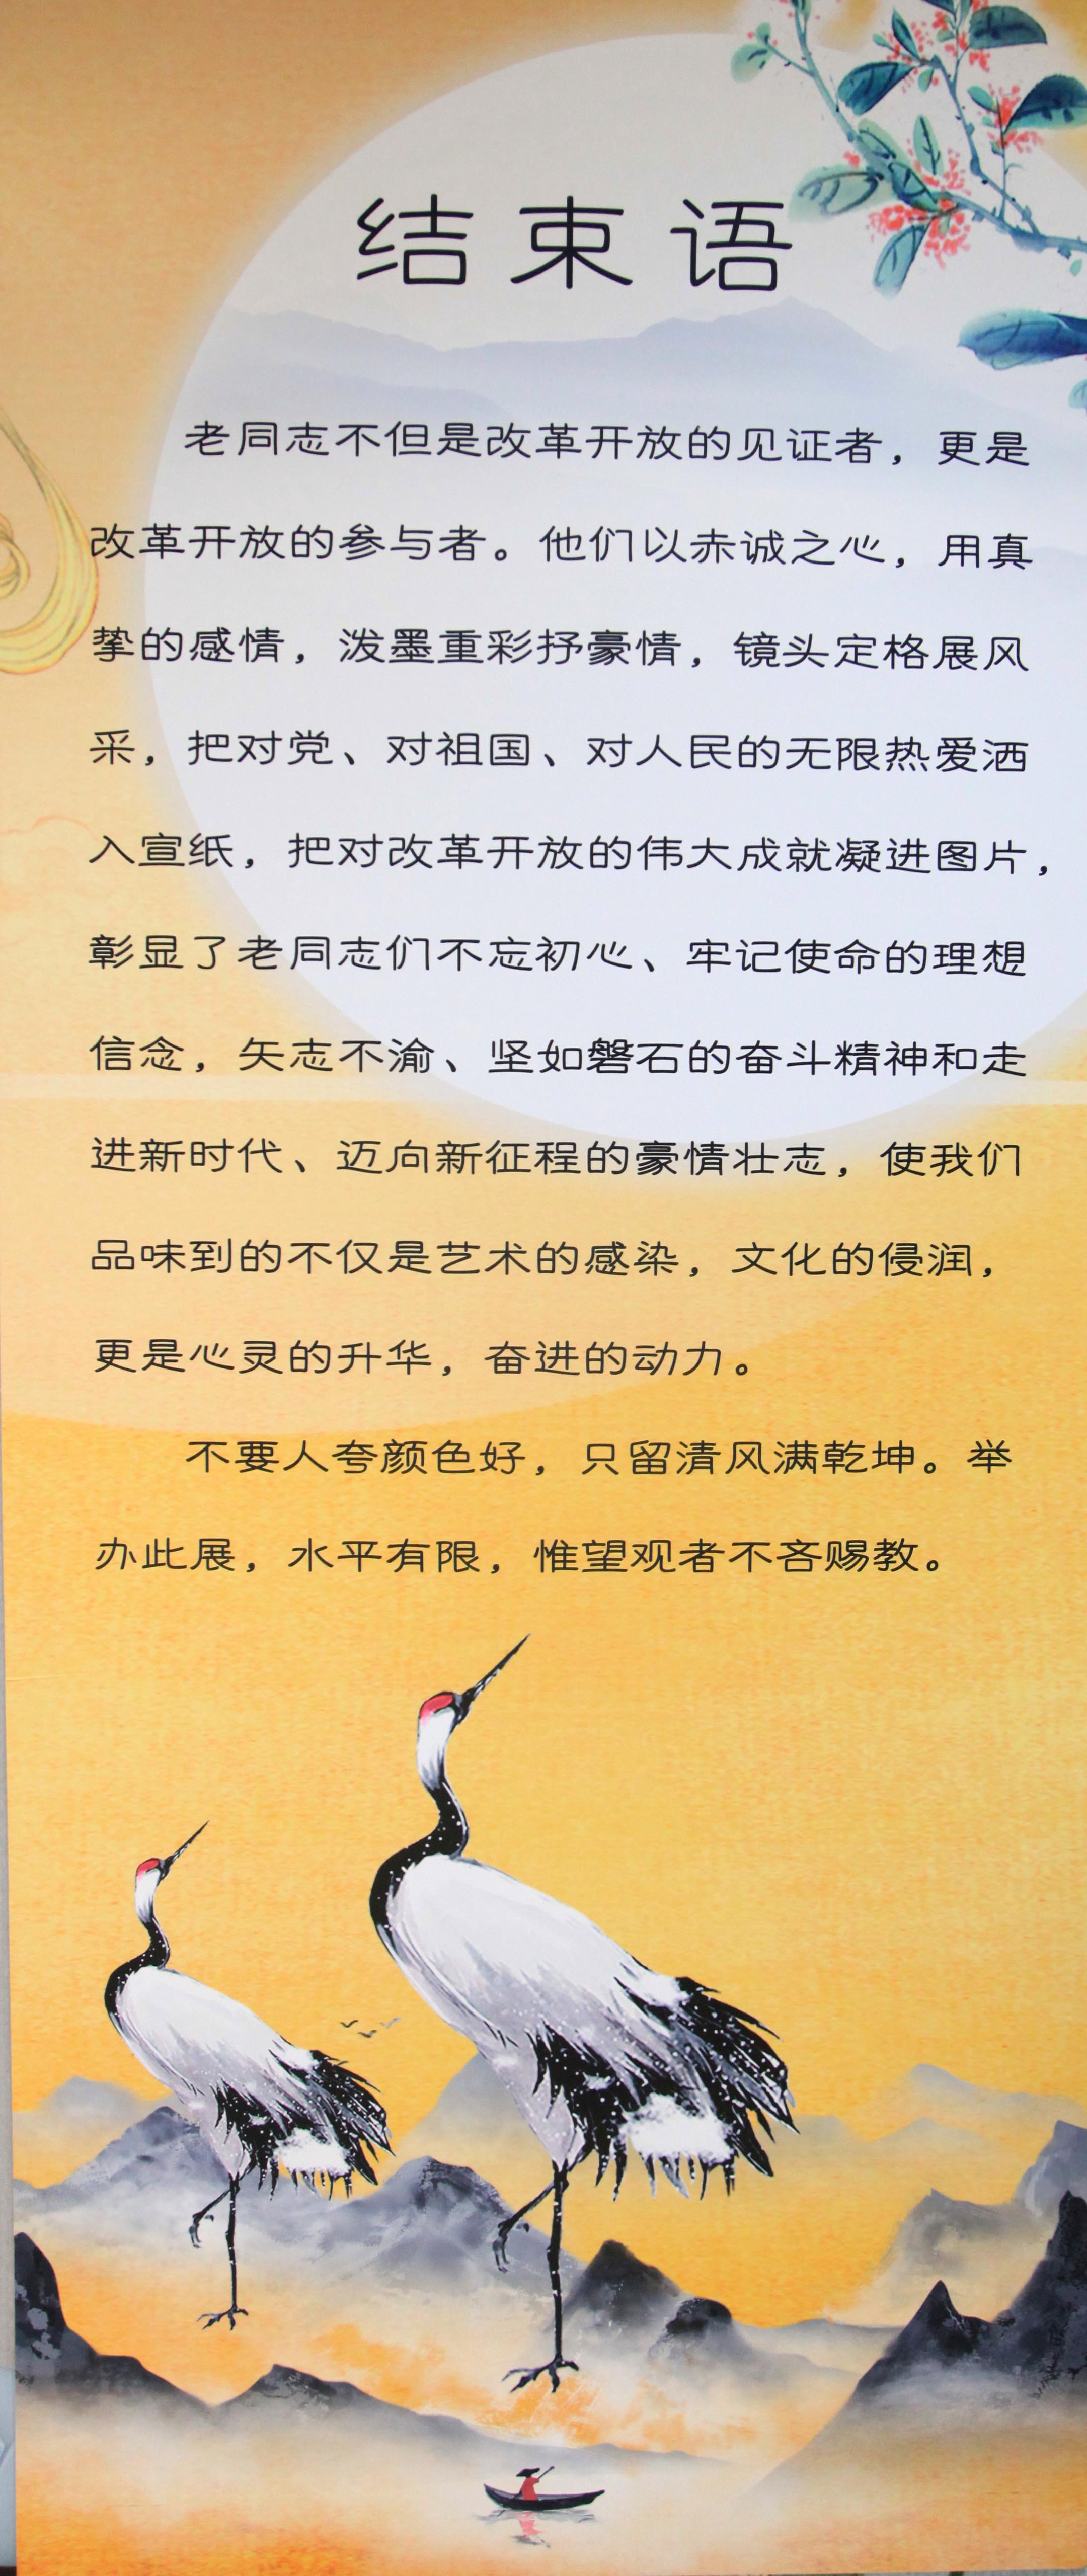 结束语
老同志不但是改革开放的见证者，更是
改革开放的参与者。他们以赤诚之心，用真
挚的感情，泼墨重彩抒豪情，镜头定格展风
采，把对党、对祖国、对人民的无限热爱洒
入宣纸，把对改革开放的伟大成就凝进图片，
彰显了老同志们不忘初心、牢记使命的理想
信念，矢志不渝、坚如磐石的奋斗精神和走
进新时代、迈向新征程的豪情壮志，使我们
品味到的不仅是艺术的感染，文化的侵润，
更是心灵的升华，奋进的动力。
不要人夸颜色好，只留清风满乾坤。举
办此展，水平有限，惟望观者不吝赐教。